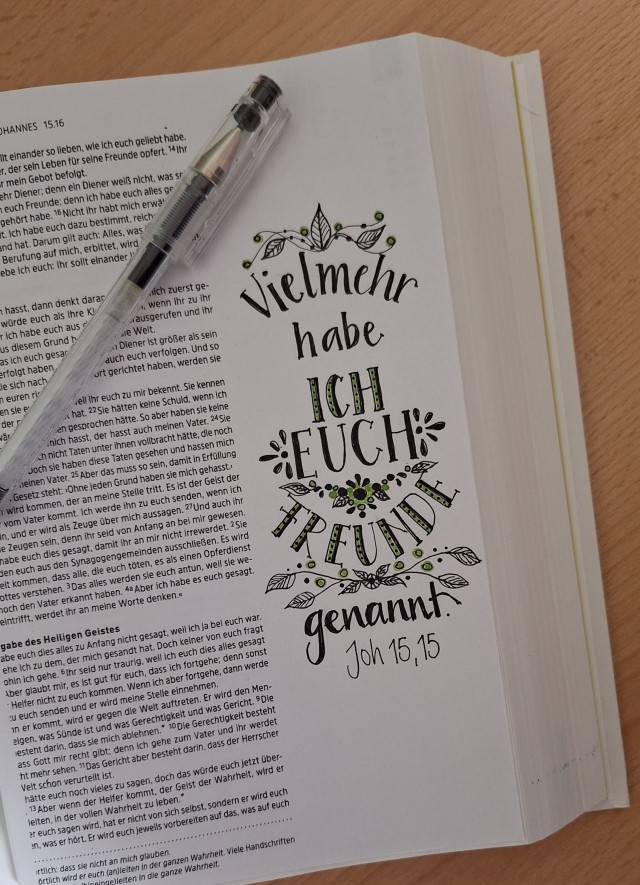 OHANNES 15.16
einander so lieben, wie ich euch geliebt habe.
er, der sein Leben für seine Freunde opfert. 14 Ihr
mein Gebot befolgt.
Diener; denn ein Diener weiß nicht, was
euch Freunde; denn ich habe euch alles
gehört habe. 16 Nicht ihr habt mich
Ich habe euch dazu bestimmt,
und hat. Darum gilt auch: Alles, was
Berufung auf mich, erbittet, wird
ich euch: Ihr sollt einander
hasst, dann denkt zuerst ge-
würde euch als ihre wenn ihr zu ihr
ich habe euch aus und ihr
aus diesem Grund die Welt.
ich euch Diener ist größer als sein
erfolgt haben, auch euch verfolgen. Und so
sie sich nach gerichtet haben, werden sie
euren ihr euch zu mir bekennt. Sie kennen
hat. 22 Sie hätten keine Schuld, wenn ich
gesprochen hätte. So aber haben sie keine
mich hasst, der hasst auch meinen Vater. 24 Sie
ich nicht Taten unter ihnen vollbracht hätte, die noch
Doch sie haben diese Taten gesehen und hassen mich
meinen Vater. 25 Aber das muss so sein, damit in Erfüllung
Gesetz steht: ›Ohne jeden Grund haben sie mich gehasst.‹
wird kommen, der an meine Stelle tritt. Es ist der Geist der
vom Vater kommt. Ich werde ihn zu euch senden, wenn ich
und er wird als Zeuge über mich aussagen. 27 Und auch ihr
Zeugen sein, denn ihr seid von Anfang an bei mir gewesen.
habe euch dies gesagt, damit ihr an mir nicht irrewerdet. 2 Sie
euch aus den Synagogengemeinden ausschließen. Es wird
kommen, dass alle, die euch töten, es als einen Opferdienst
verstehen. 3 Das alles werden sie euch antun, weil sie we-
noch den Vater erkannt haben. 4a Aber ich habe es euch gesagt,
eintrifft, werdet ihr an meine Worte denken.«
gabe des Heiligen Geistes
habe euch dies alles zu Anfang nicht gesagt, weil ich ja bei euch war.
gehe ich zu dem, der mich gesandt hat. Doch keiner von euch fragt
ich gehe. 6 Ihr seid nur traurig, weil ich euch dies alles gesagt
Aber glaubt mir, es ist gut für euch, dass ich fortgehe; denn sonst
Helfer nicht zu euch kommen. Wenn ich aber fortgehe, dann werde
zu euch senden und er wird meine Stelle einnehmen.
er kommt, wird er gegen die Welt auftreten. Er wird den Men-
was Sünde ist und was Gerechtigkeit und was Gericht. 9 Die
besteht darin, dass sie mich ablehnen.* 10 Die Gerechtigkeit besteht
Gott mir recht gibt; denn ich gehe zum Vater und ihr werdet
mehr sehen. 11 Das Gericht aber besteht darin, dass der Herrscher
Welt schon verurteilt ist.
hätte euch noch vieles zu sagen, doch das würde euch jetzt über-
13 Aber wenn der Helfer kommt, der Geist der Wahrheit, wird er
leiten, in der vollen Wahrheit zu leben.*
er euch sagen wird, hat er nicht von sich selbst, sondern er wird euch
was er hört. Er wird euch jeweils vorbereiten auf das, was auf euch
dass sie nicht an mich glauben.
wird er euch (an)leiten in der ganzen Wahrheit. Viele Handschriften
in die ganze Wahrheit.
Vielmehr
habe
ICH
EUCH
FREUNDE
genannt.
Joh 15,15